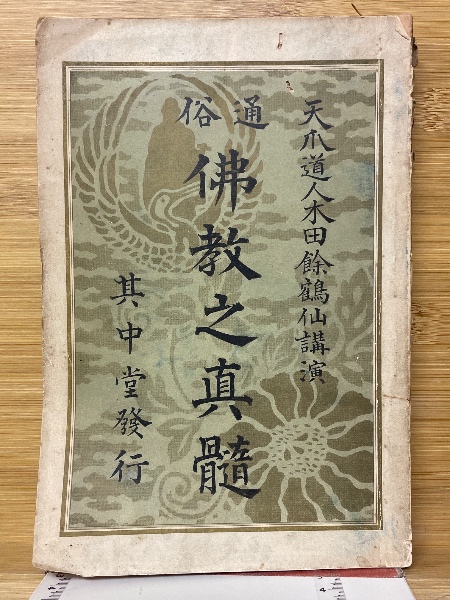 天爪道人木田餘鶴仙講演
通俗
佛教之真髓
其中堂發行